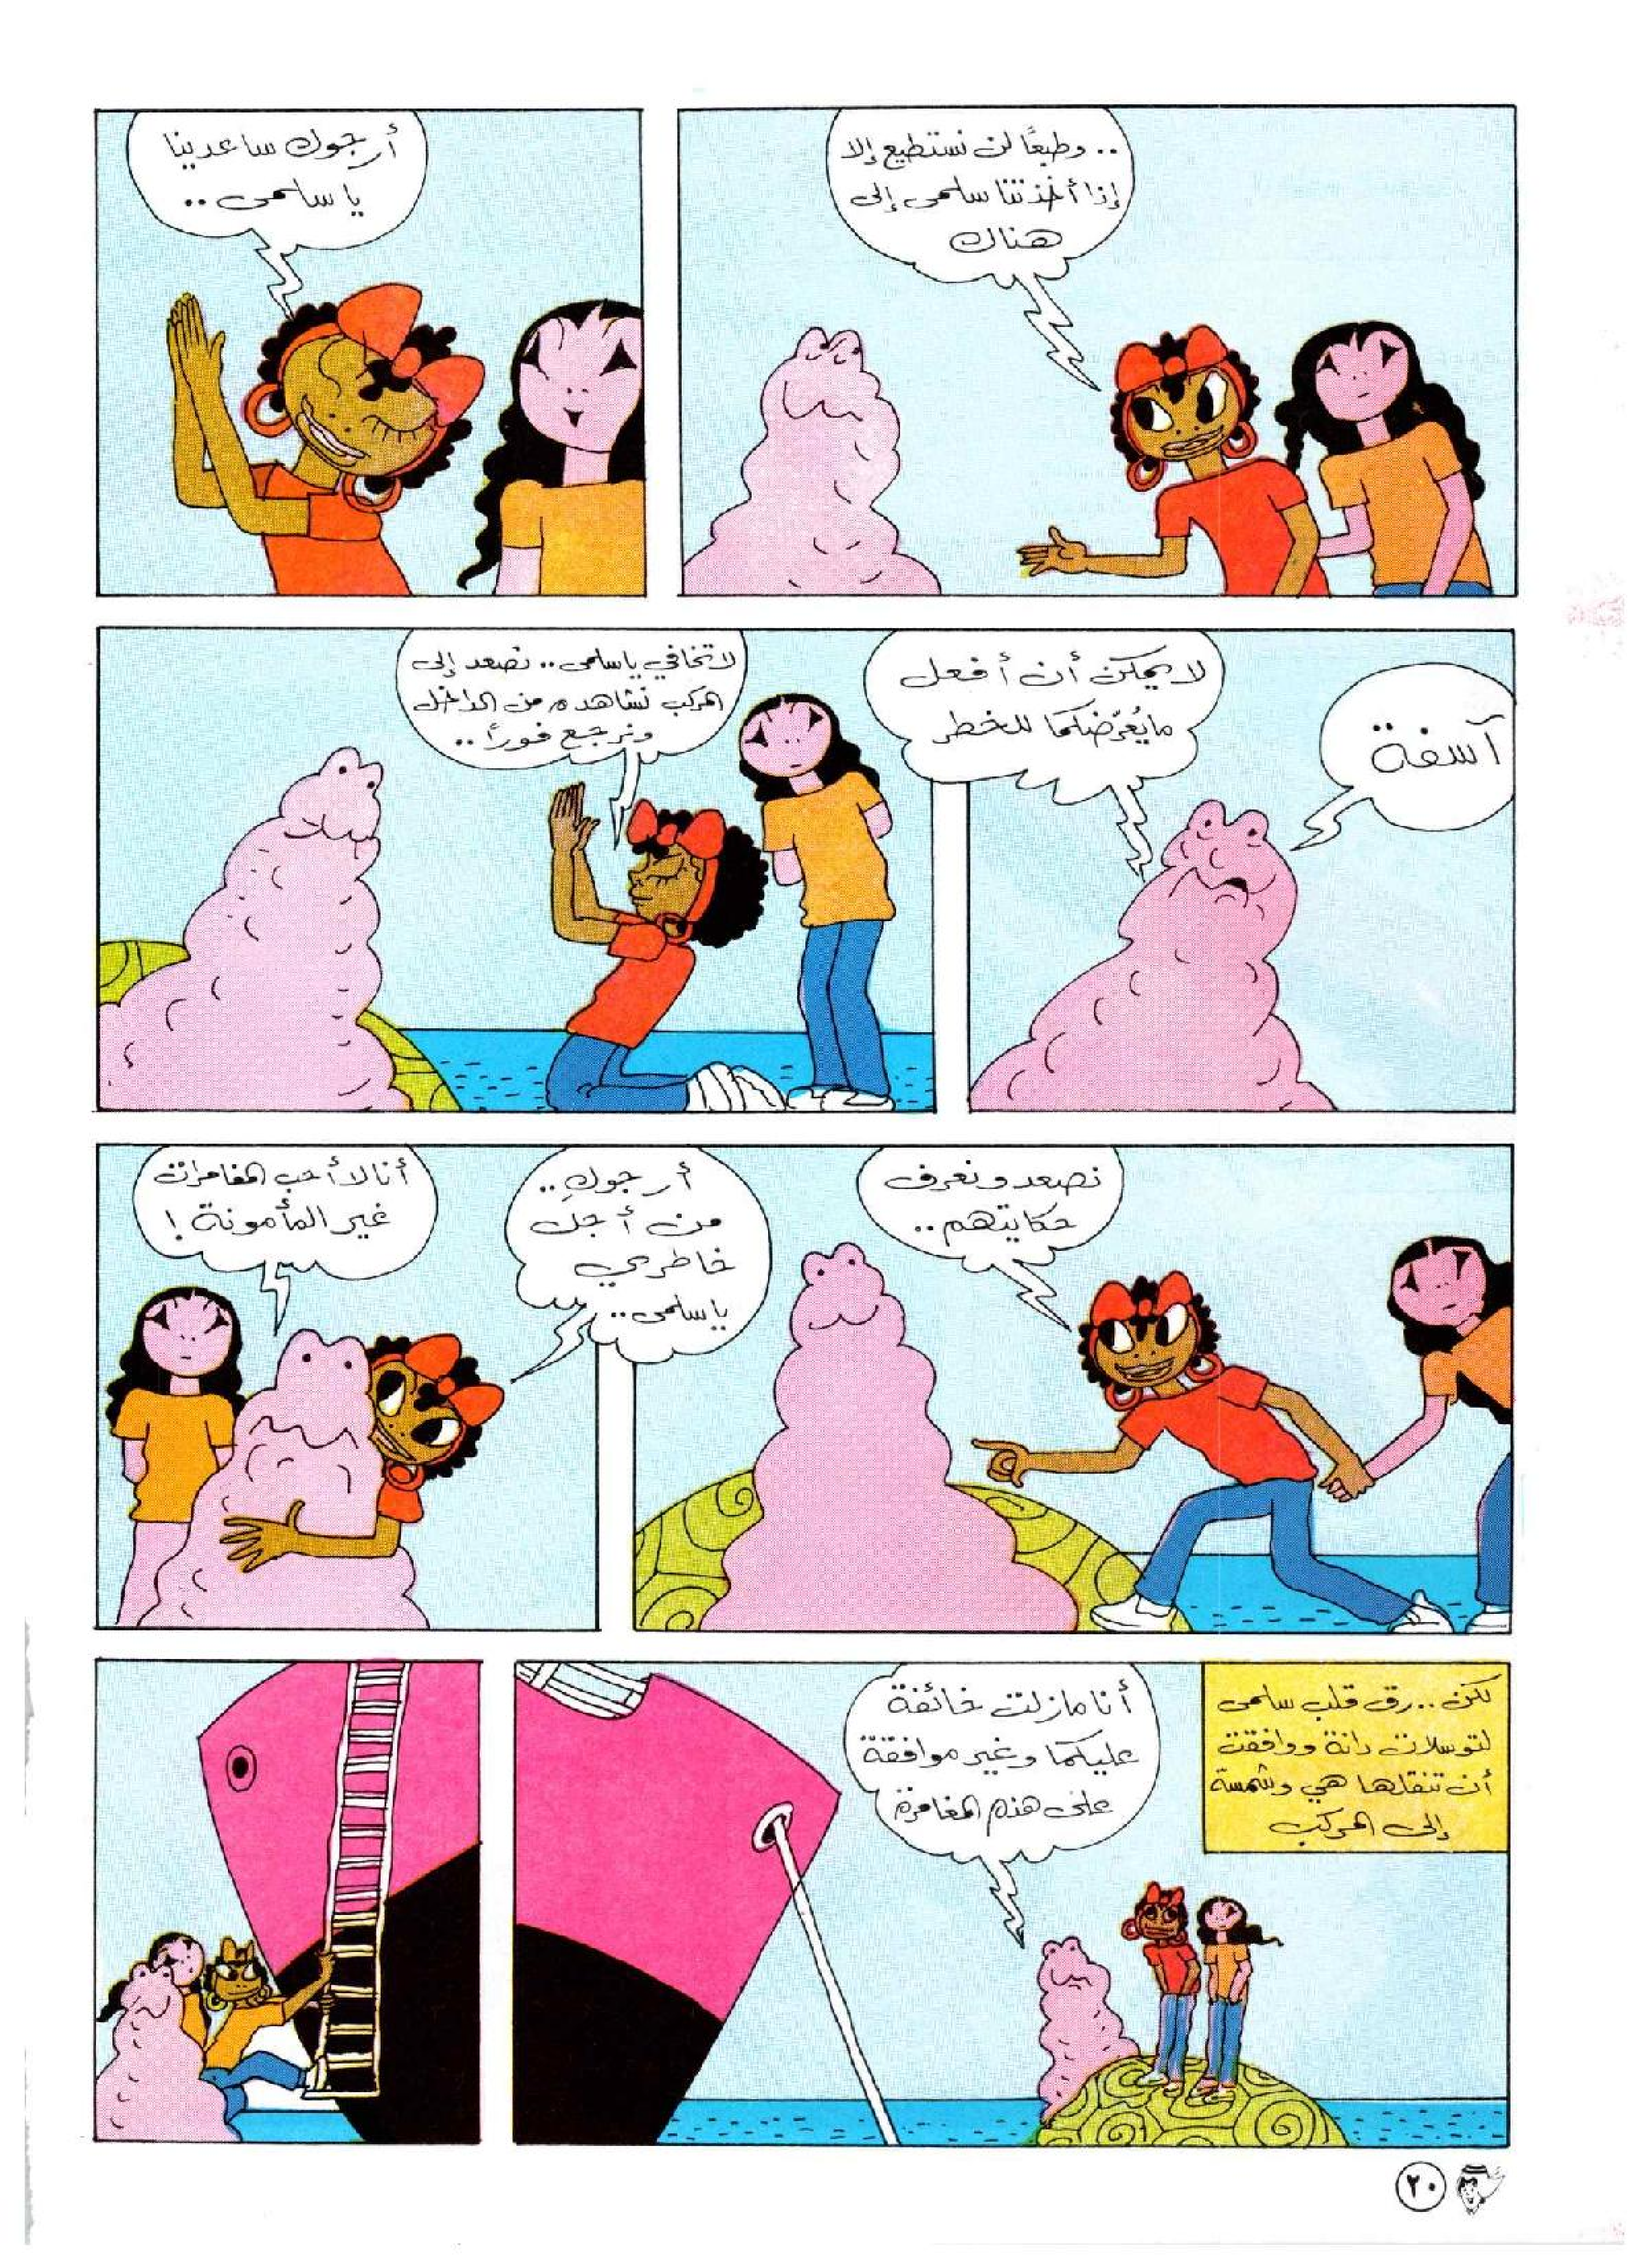 .. وطبعًا لن نستطيع إلا
إذا أخذتنا سلمى إلى
هناك
أرجوك ساعدينا
يا سلمى ..
آسفة
لا يمكن أن أفعل
ما يُعرّضكما للخطر
لا تخافي يا سلمى .. نصعد إلى
المركب نشاهده من الداخل
ونرجع فوراً ..
نصعد ونعرف
حكايتهم ..
أرجوكِ ..
من أجل
خاطري
يا سلمى ..
أنا لا أحب المغامرات
غير المأمونة !
لكن .. رق قلب سلمى
لتوسلات دانة ووافقت
أن تنقلها هي وشمسة
إلى المركب
أنا مازلت خائفة
عليكما وغير موافقة
على هذه المغامرة
٢٠